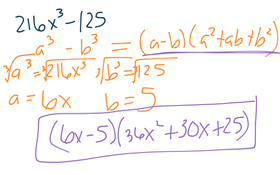 216x³ - 125
a³ - b³ = (a-b)(a²+ab+b²)
∛a³ = ∛216x³, ∛b³ = ∛125
a = 6x b = 5
(6x-5)(36x²+30x+25)